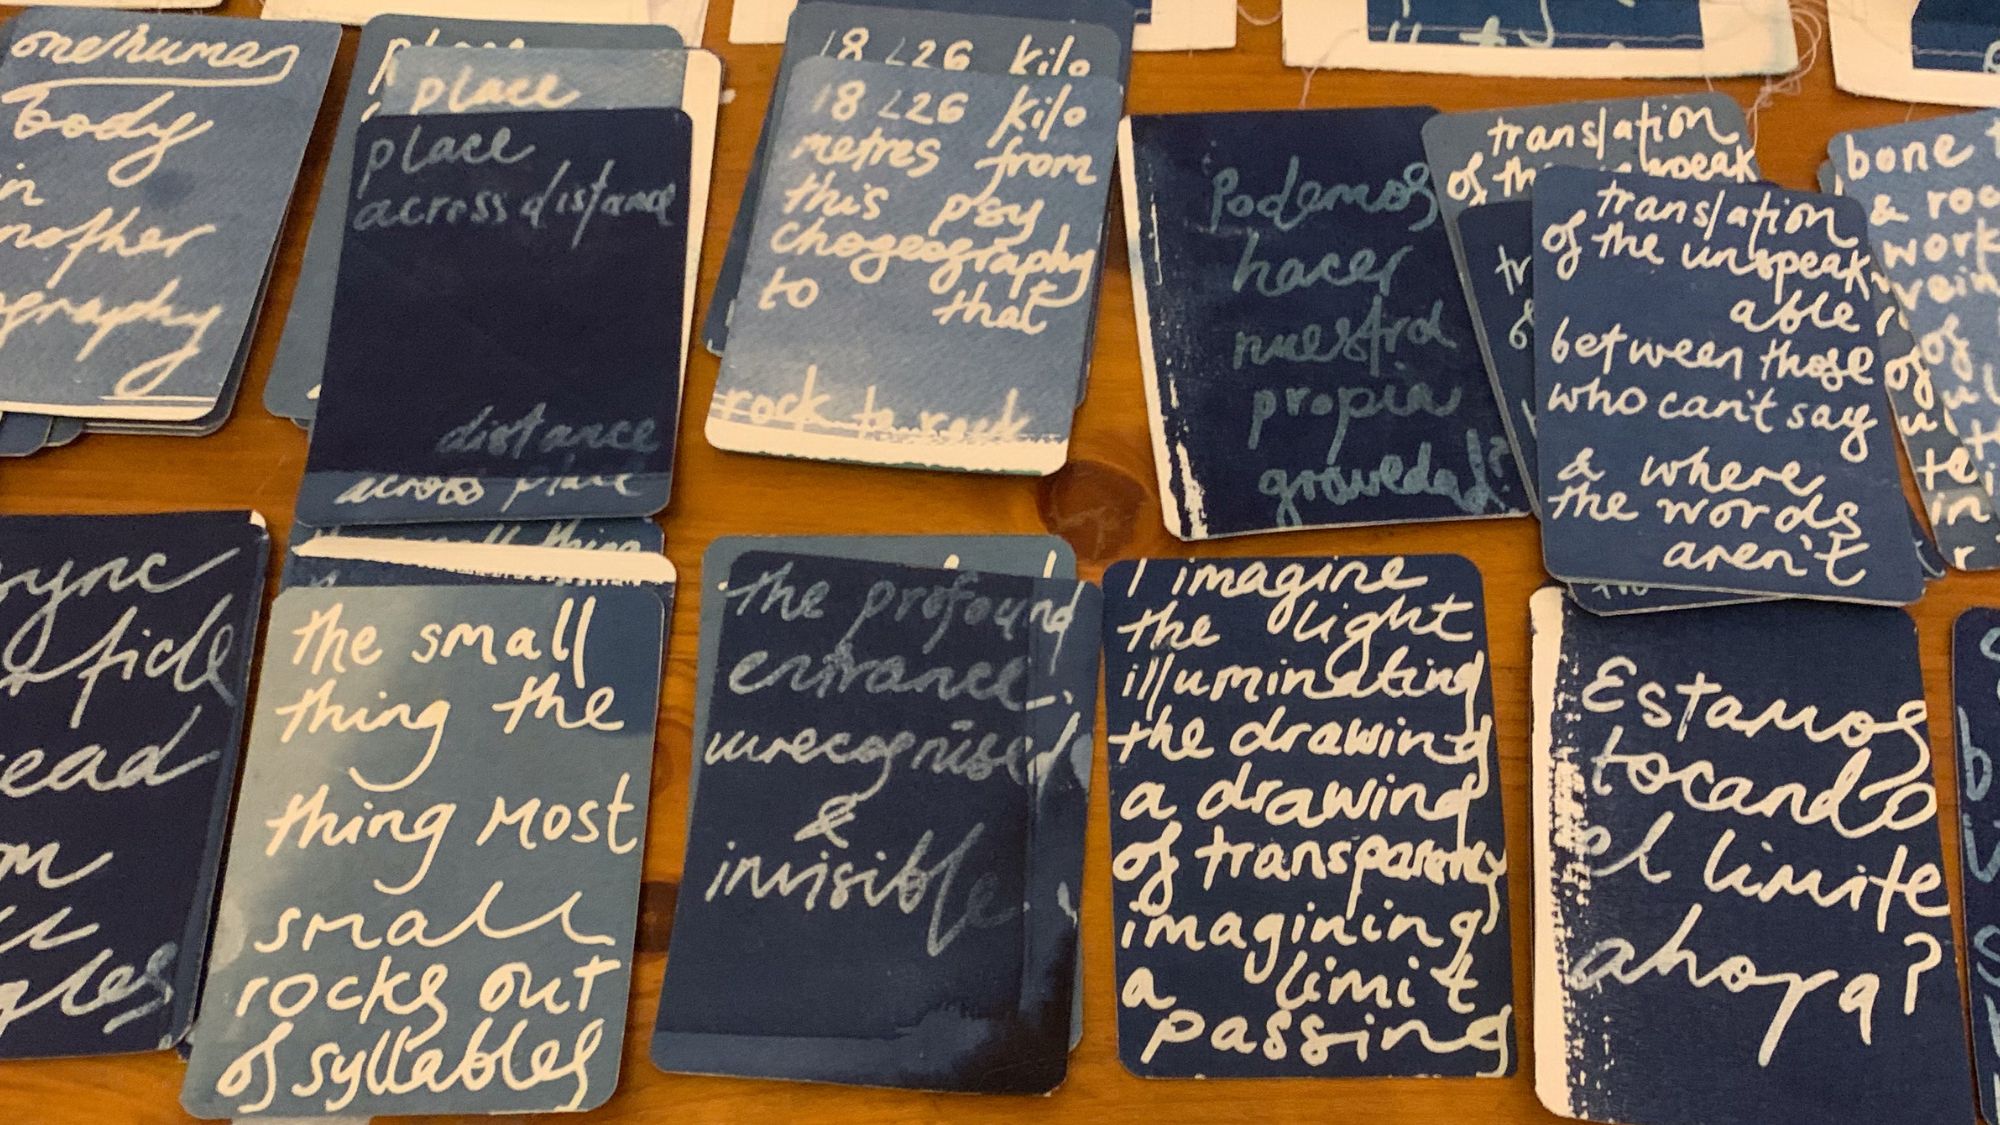 one human
body
in
another
ography
place
place
place
across distance
distance
across place
18 226 kilo
18 226 kilo
metres from
this psy
chogeography
to that
rock to rock
Podemos
hacer
nuestra
propia
gravedad?
translation
of the unspeak
translation
of the unspeak
able
between those
who can't say
& where
the words
aren't
bone
& roo
work
vein
of
ul
te
in
sync
ficle
ead
m
gles
the small thing
the small
thing the
thing most
small
rocks out
of syllables
the profound
entrance
unrecognised
&
invisible
I imagine
the light
illuminating
the drawing
a drawing
of transparency
imagining
a limit
passing
Estamos
tocando
el limite
ahora?